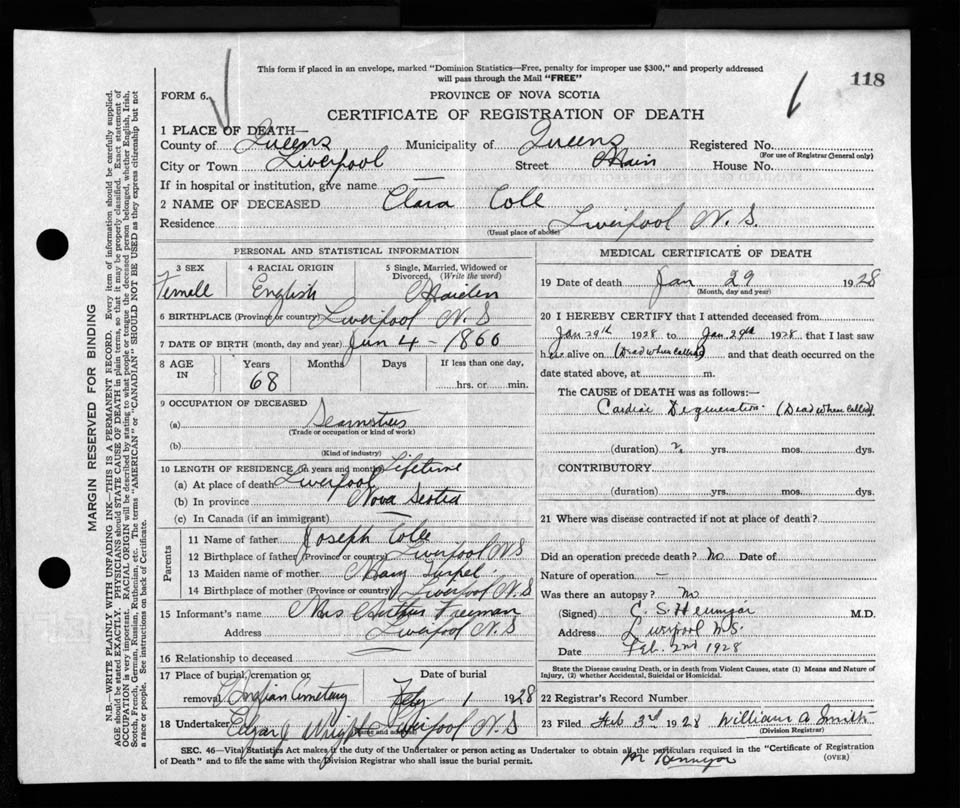 This form if placed in an envelope, marked "Dominion Statistics—Free, penalty for improper use $300," and properly addressed
will pass through the Mail "FREE"
118
FORM 6.
PROVINCE OF NOVA SCOTIA
CERTIFICATE OF REGISTRATION OF DEATH
1 PLACE OF DEATH—
County of Queens Municipality of Queens Registered No.
(For use of Registrar General only)
City or Town Liverpool Street Main House No.
If in hospital or institution, give name —
2 NAME OF DECEASED Clara Colp
Residence Liverpool N. S.
(Usual place of abode)
PERSONAL AND STATISTICAL INFORMATION
3 SEX 4 RACIAL ORIGIN 5 Single, Married, Widowed or
Divorced, (Write the word)
Femell English Maiden
6 BIRTHPLACE (Province or country) Liverpool N. S
7 DATE OF BIRTH (month, day and year) Jun 4 - 1860
8 AGE IN Years Months Days If less than one day,
68 hrs. or min.
9 OCCUPATION OF DECEASED
(a) Seamstres
(Trade or occupation or kind of work)
(b)
(Kind of industry)
10 LENGTH OF RESIDENCE (in years and months) Lifetime
(a) At place of death Liverpool
(b) In province Nova Scotia
(c) In Canada (if an immigrant) —
Parents
11 Name of father Joseph
12 Birthplace of father (Province or country) Liverpool N S
13 Maiden name of mother Mary
14 Birthplace of mother (Province or country) Liverpool N. S
15 Informant's name Mrs Arthur Freeman
Address Liverpool N. S
16 Relationship to deceased
17 Place of burial, cremation or
removal Cemetery
Date of burial
Feby 1 1928
18 Undertaker Edgar J Wright Liverpool N. S
Name and address
MEDICAL CERTIFICATE OF DEATH
19 Date of death Jan 29 1928
(Month, day and year)
20 I HEREBY CERTIFY that I attended deceased from
Jan 29th 1928 to Jan 29th 1928, that I last saw
h alive on (Dead when called) and that death occurred on the
date stated above, at m.
The CAUSE OF DEATH was as follows:—
Cardiac Degeneration. (Dead when called)
(duration) yrs. mos. dys.
CONTRIBUTORY
(duration) yrs. mos. dys.
21 Where was disease contracted if not at place of death?
Did an operation precede death? No Date of
Nature of operation —
Was there an autopsy? No
(Signed) C. S. M.D.
Address Liverpool N.S.
Date Feb. 2nd 1928
State the Disease causing Death, or in death from Violent Causes, state (1) Means and Nature of
Injury, (2) whether Accidental, Suicidal or Homicidal.
22 Registrar's Record Number
23 Filed Feb 3rd 1928 William A Smith
(Division Registrar)
SEC. 46—Vital Statistics Act makes it the duty of the Undertaker or person acting as Undertaker to obtain all the particulars required in the "Certificate of Registration
of Death" and to file the same with the Division Registrar who shall issue the burial permit.
(OVER)
MARGIN RESERVED FOR BINDING
N.B.—WRITE PLAINLY WITH UNFADING INK—THIS IS A PERMANENT RECORD. Every item of information should be carefully supplied.
AGE should be stated EXACTLY. PHYSICIANS should STATE CAUSE OF DEATH in plain terms, so that it may be properly classified. Exact statement of
OCCUPATION is very important. RACIAL ORIGIN will be described by stating to what people or tongue the deceased person belonged, whether English, Irish,
Scotch, French, German, Russian, Ruthenian, etc. The terms "AMERICAN" or "CANADIAN" SHOULD NOT BE USED as they express citizenship but not
a race or people. See instructions on back of Certificate.